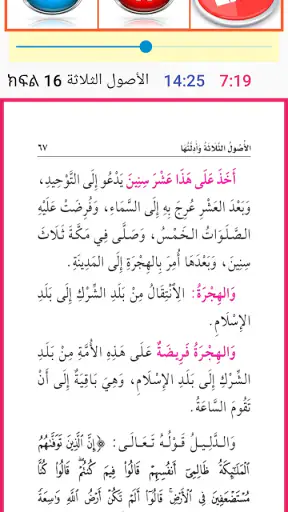 ክፍል 16 الأصول الثلاثة 14:25 7:19
الأُصُولُ الثَّلَاثَةُ وَأَدِلَّتُهَا ٦٧
أَخَذَ عَلَى هَذَا عَشْرَ سِنِينَ يَدْعُو إِلَى التَّوْحِيدِ،
وَبَعْدَ العَشْرِ عُرِجَ بِهِ إِلَى السَّمَاءِ، وَفُرِضَتْ عَلَيْهِ
الصَّلَوَاتُ الخَمْسُ، وَصَلَّى فِي مَكَّةَ ثَلَاثَ
سِنِينَ، وَبَعْدَهَا أُمِرَ بِالهِجْرَةِ إِلَى المَدِينَةِ.
وَالهِجْرَةُ: الِانْتِقَالُ مِنْ بَلَدِ الشِّرْكِ إِلَى بَلَدِ
الإِسْلَامِ.
وَالهِجْرَةُ فَرِيضَةٌ عَلَى هَذِهِ الأُمَّةِ مِنْ بَلَدِ
الشِّرْكِ إِلَى بَلَدِ الإِسْلَامِ، وَهِيَ بَاقِيَةٌ إِلَى أَنْ
تَقُومَ السَّاعَةُ.
وَالدَّلِيلُ قَوْلُهُ تَعَالَى: ﴿إِنَّ الَّذِينَ تَوَفَّاهُمُ
الْمَلَائِكَةُ ظَالِمِي أَنْفُسِهِمْ قَالُوا فِيمَ كُنْتُمْ قَالُوا كُنَّا
مُسْتَضْعَفِينَ فِي الْأَرْضِ قَالُوا أَلَمْ تَكُنْ أَرْضُ اللَّهِ وَاسِعَةً